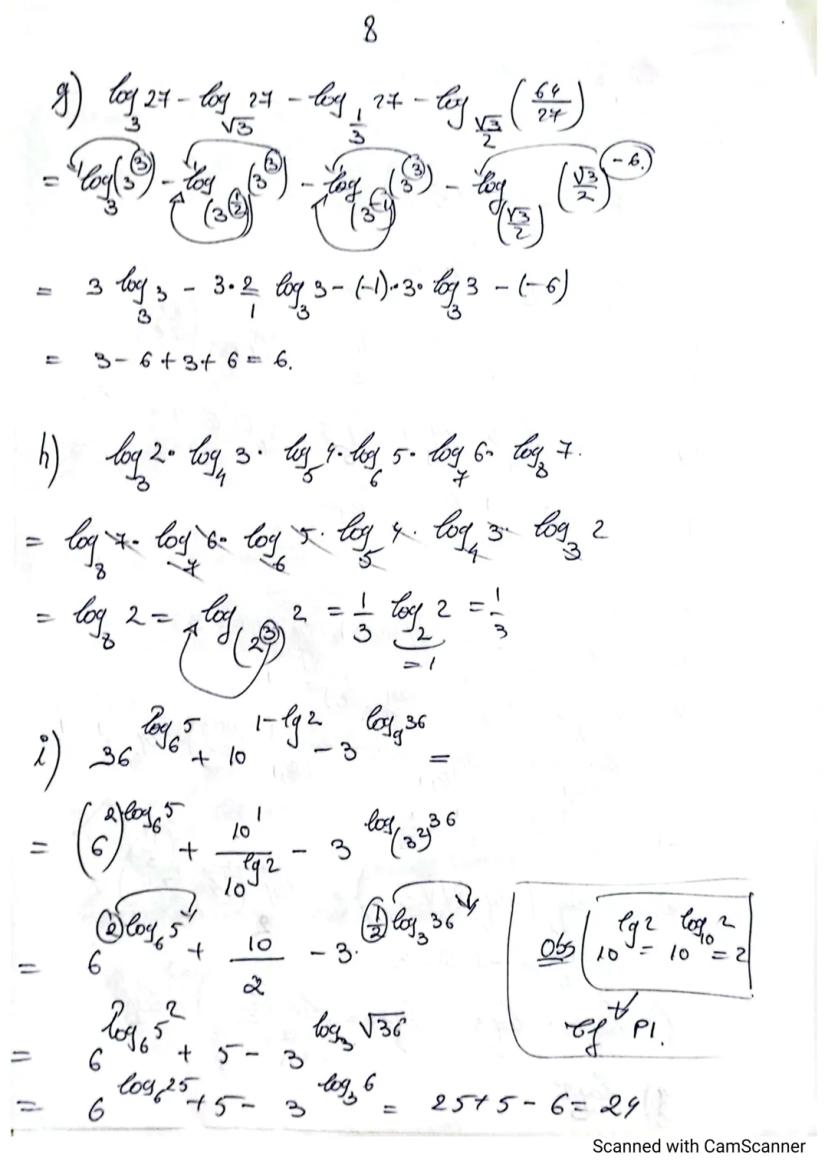 8
g) log₃ 27 - log_√3 27 - log_(1/3) 27 - log_(√3/2) (64/27)
= log₃ (3³) - log_(3^(1/2)) (3³) - log_(3^(-1)) (3³) - log_(√3/2) (√3/2)^(-6)
= 3 log₃ 3 - 3·2/1 log₃ 3 - (-1)·3·log₃ 3 - (-6)
= 3 - 6 + 3 + 6 = 6.
h) log₃ 2 · log₄ 3 · log₅ 4 · log₆ 5 · log₇ 6 · log₈ 7.
= log₈ 7 · log₇ 6 · log₆ 5 · log₅ 4 · log₄ 3 · log₃ 2
= log₈ 2 = log_(2³) 2 = 1/3 log₂ 2 = 1/3
= 1
i) 36^(log₆ 5) + 10^(1-lg 2) - 3^(log₉ 36) =
= (6²)^(log₆ 5) + 10¹/10^(lg 2) - 3^(log_(3²) 36)
= 6^(2 log₆ 5) + 10/2 - 3^(1/2 log₃ 36)
Obs 10^(lg 2) = 10^(log₁₀ 2) = 2
cf P1.
= 6^(log₆ 5²) + 5 - 3^(log₃ √36)
= 6^(log₆ 25) + 5 - 3^(log₃ 6) = 25 + 5 - 6 = 24
Scanned with CamScanner